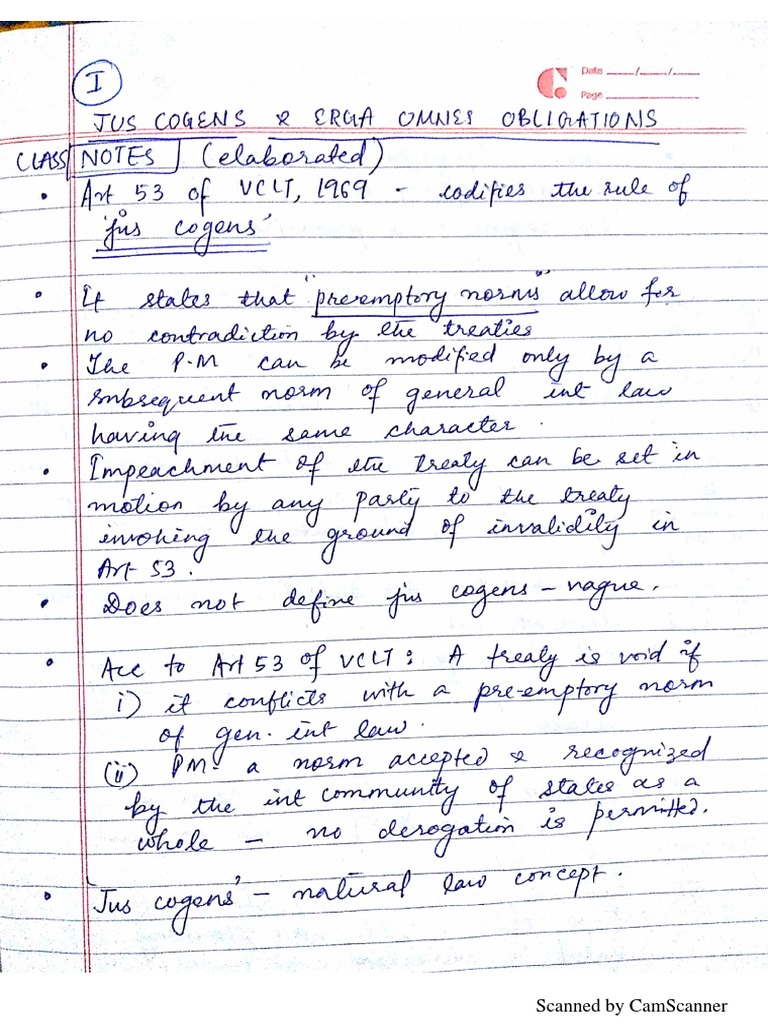 I
Date __/__/__
Page
JUS COGENS & ERGA OMNES OBLIGATIONS
CLASS NOTES (elaborated)
• Art 53 of VCLT, 1969 - codifies the rule of
'jus cogens'
• It states that "pre-emptory norms" allow for
no contradiction by the treaties
• The P.M can be modified only by a
subsequent norm of general int law
having the same character.
• Impeachment of the treaty can be set in
motion by any party to the treaty
invoking the ground of invalidity in
Art 53.
• Does not define jus cogens - vague.
• Acc to Art 53 of VCLT: A treaty is void if
i) it conflicts with a pre-emptory norm
of gen. int law.
(ii) PM: a norm accepted & recognized
by the int community of states as a
whole - no derogation is permitted.
• 'Jus cogens' - natural law concept.
Scanned by CamScanner